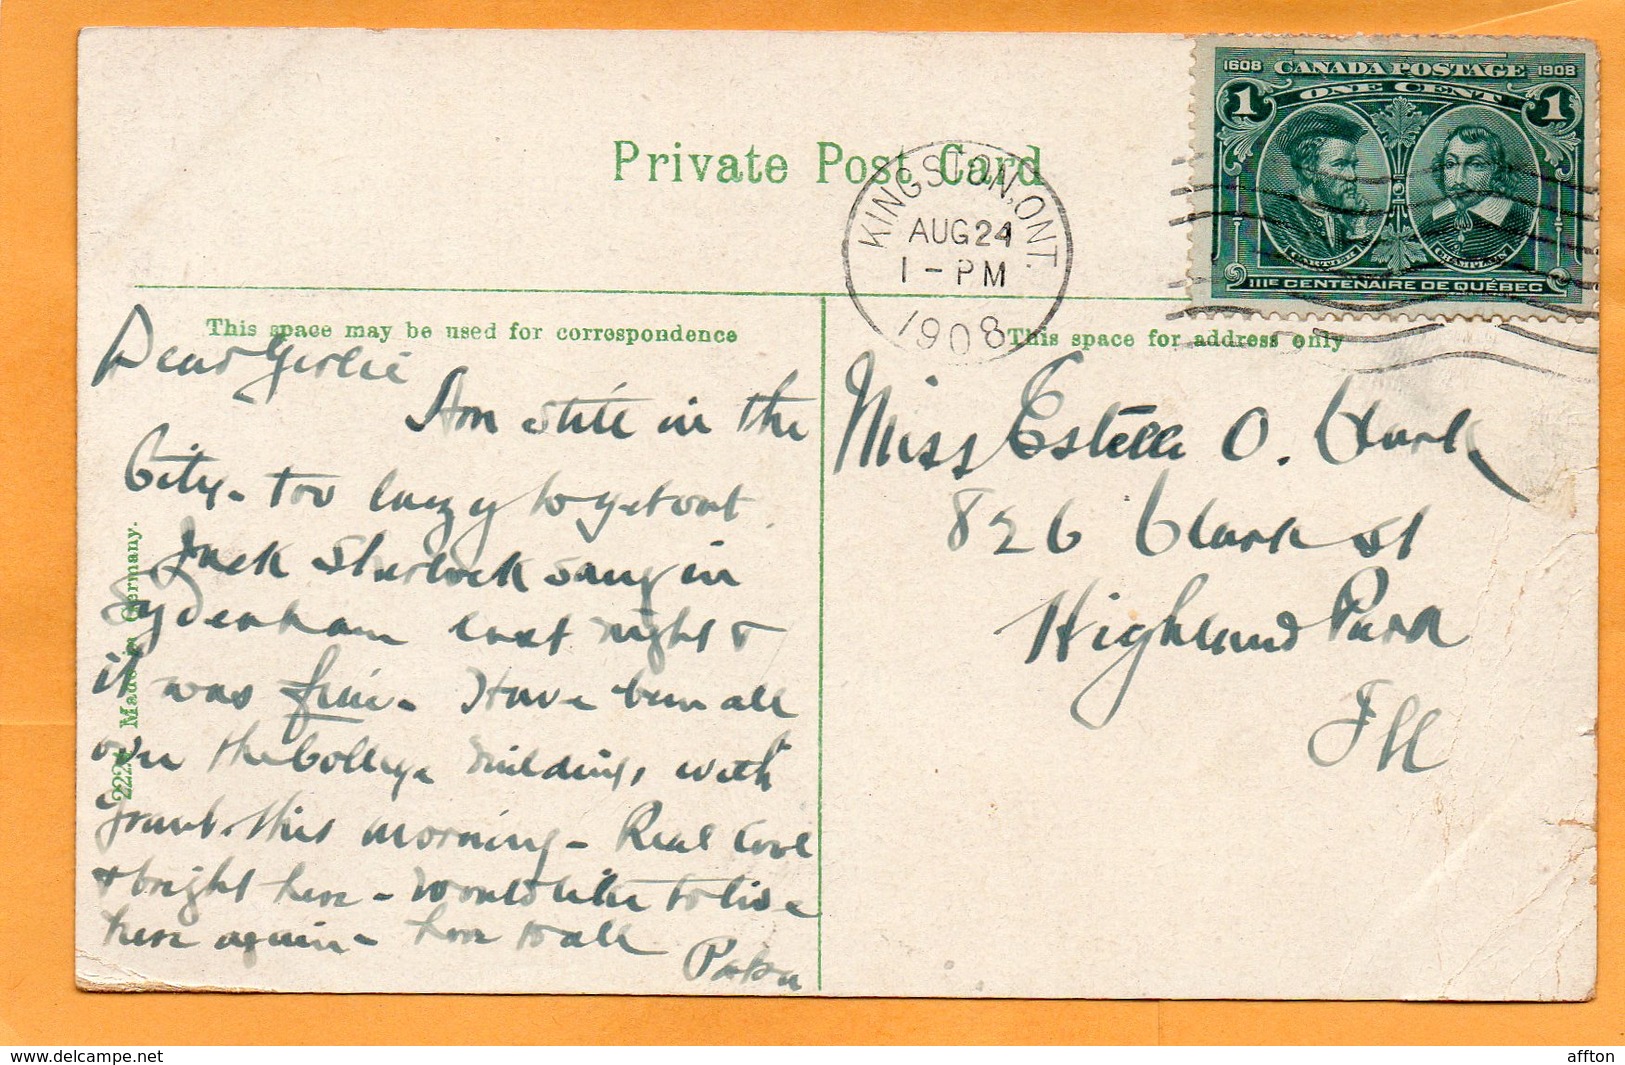 1608 CANADA POSTAGE 1908
1 ONE CENT 1
CARTIER CHAMPLAIN
IIIE CENTENAIRE DE QUÉBEC
Private Post Card
KINGSTON, ONT.
AUG 24
1 - PM
1908
This space may be used for correspondence
This space for address only
Dear Girlie
Am still in the
City - too lazy to get out
Jack Sherlock sang in
Sydenham last night &
it was fine - Have been all
over the College buildings with
Grant this morning - Real cool
& bright here - Would like to live
here again - love to all
Papa
Miss Estelle O. Clark
826 Clark St
Highland Park
Ill
Made in Germany.
www.delcampe.net
affton